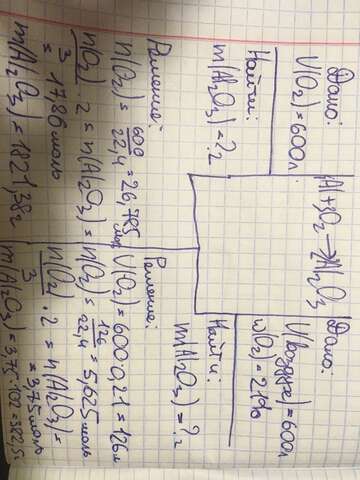 Дано:
V(O₂)=600л
Найти:
m(Al₂O₃)=?г
Решение:
n(O₂)= 600/22,4 = 26,785 моль
n(O₂)/3 · 2 = n(Al₂O₃) =
= 1786 моль
m(Al₂O₃)=1821,38г
Al+3O₂→2Al₂O₃
Дано:
V(воздуха)=600л
w(O₂)=21%
Найти:
m(Al₂O₃)=?г
Решение:
V(O₂)=600·0,21=126л
n(O₂)= 126/22,4 = 5,625 моль
n(O₂)/3 · 2 = n(Al₂O₃)=
= 3,75 моль
m(Al₂O₃)=3,75·102=382,5